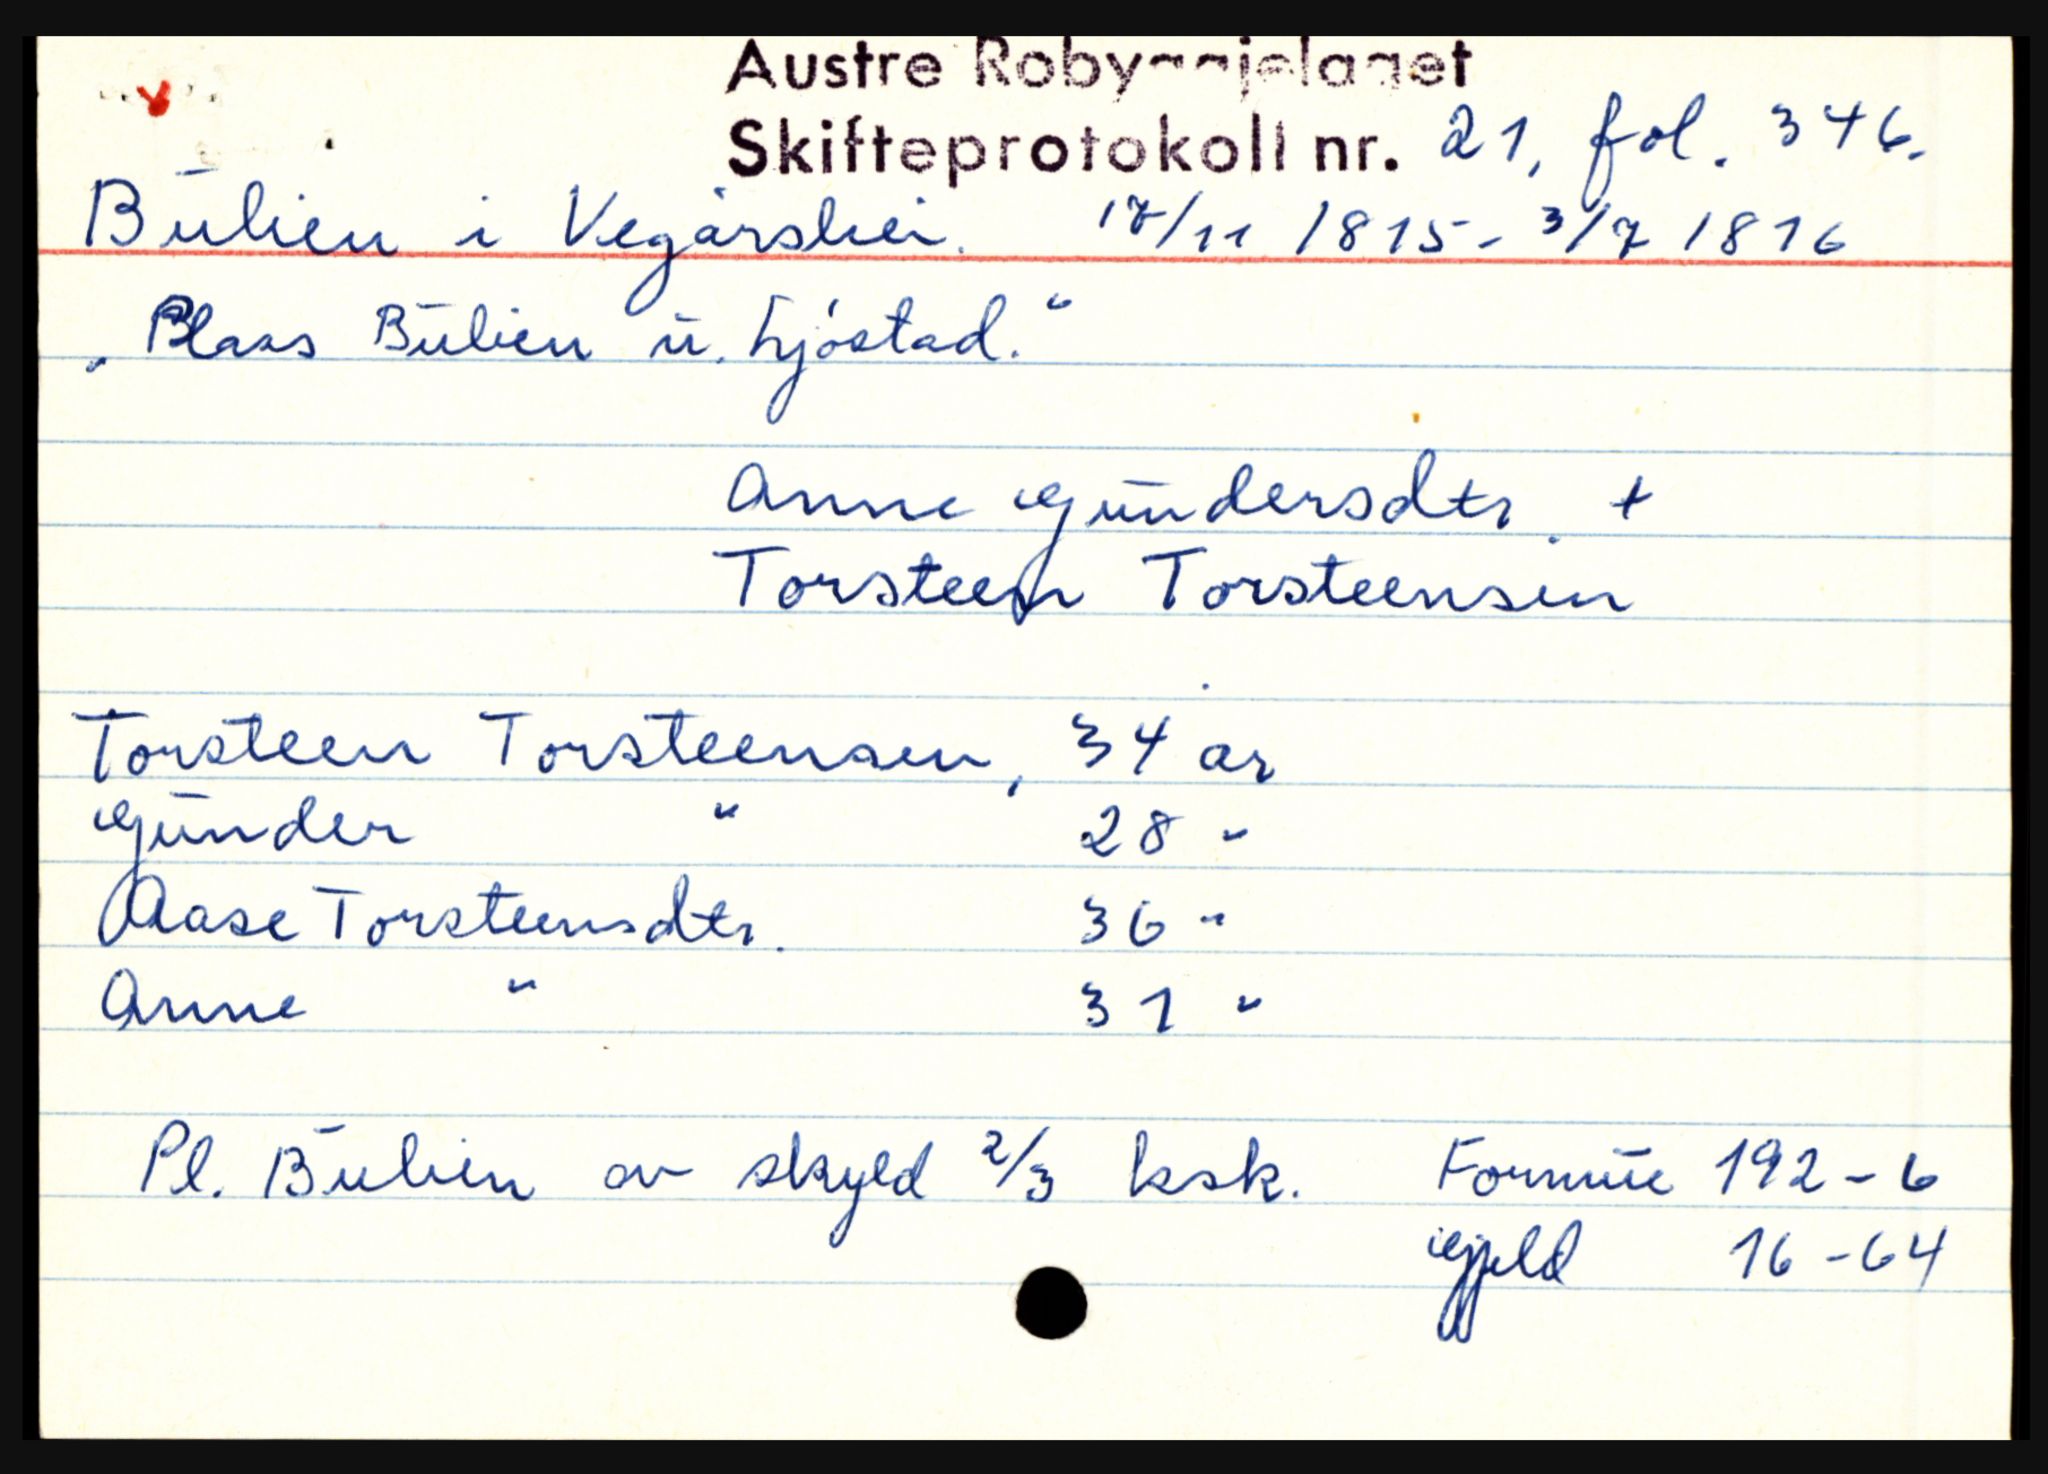 Austre Robyggjelaget
Skifteprotokoll nr. 21, fol. 346.
Bulien i Vegårshei. 17/11 1815 - 3/7 1816
„Plass Bulien u. Ljøstad."
Anne Gundersdtr +
Torsteen Torsteensen
Torsteen Torsteensen, 34 år
Gunder " 28 "
Aase Torsteensdtr. 36 "
Anne " 31 "
Pl. Bulien av skyld 2/3 ksk. Formue 192 - 6
Gjeld 16 - 64